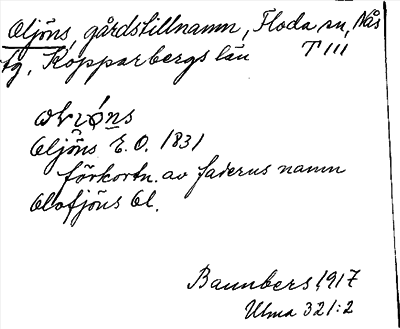 Oljöns, gårdstillnamn, Floda sn, Nås
tg, Kopparbergs län T III
Oljöns E. O. 1831
förkortn. av faderns namn
Olofjöns Ol.
Bannbers 1917
Ulma 321:2